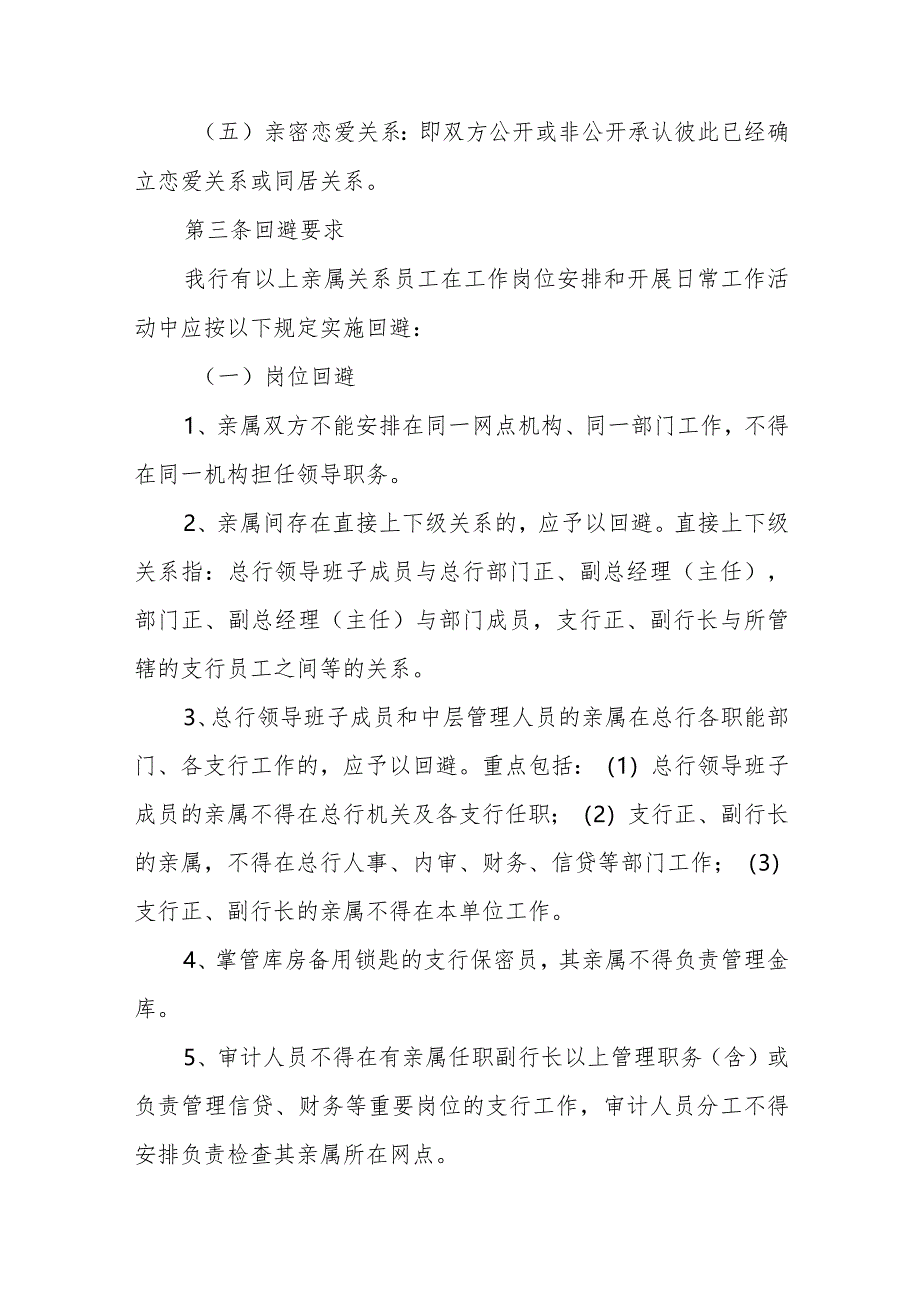 （五）亲密恋爱关系：即双方公开或非公开承认彼此已经确
立恋爱关系或同居关系。
第三条回避要求
我行有以上亲属关系员工在工作岗位安排和开展日常工作活
动中应按以下规定实施回避：
（一）岗位回避
1、亲属双方不能安排在同一网点机构、同一部门工作，不得
在同一机构担任领导职务。
2、亲属间存在直接上下级关系的，应予以回避。直接上下级
关系指：总行领导班子成员与总行部门正、副总经理（主任），
部门正、副总经理（主任）与部门成员，支行正、副行长与所管
辖的支行员工之间等的关系。
3、总行领导班子成员和中层管理人员的亲属在总行各职能部
门、各支行工作的，应予以回避。重点包括：（1）总行领导班子
成员的亲属不得在总行机关及各支行任职；（2）支行正、副行长
的亲属，不得在总行人事、内审、财务、信贷等部门工作；（3）
支行正、副行长的亲属不得在本单位工作。
4、掌管库房备用锁匙的支行保密员，其亲属不得负责管理金
库。
5、审计人员不得在有亲属任职副行长以上管理职务（含）或
负责管理信贷、财务等重要岗位的支行工作，审计人员分工不得
安排负责检查其亲属所在网点。